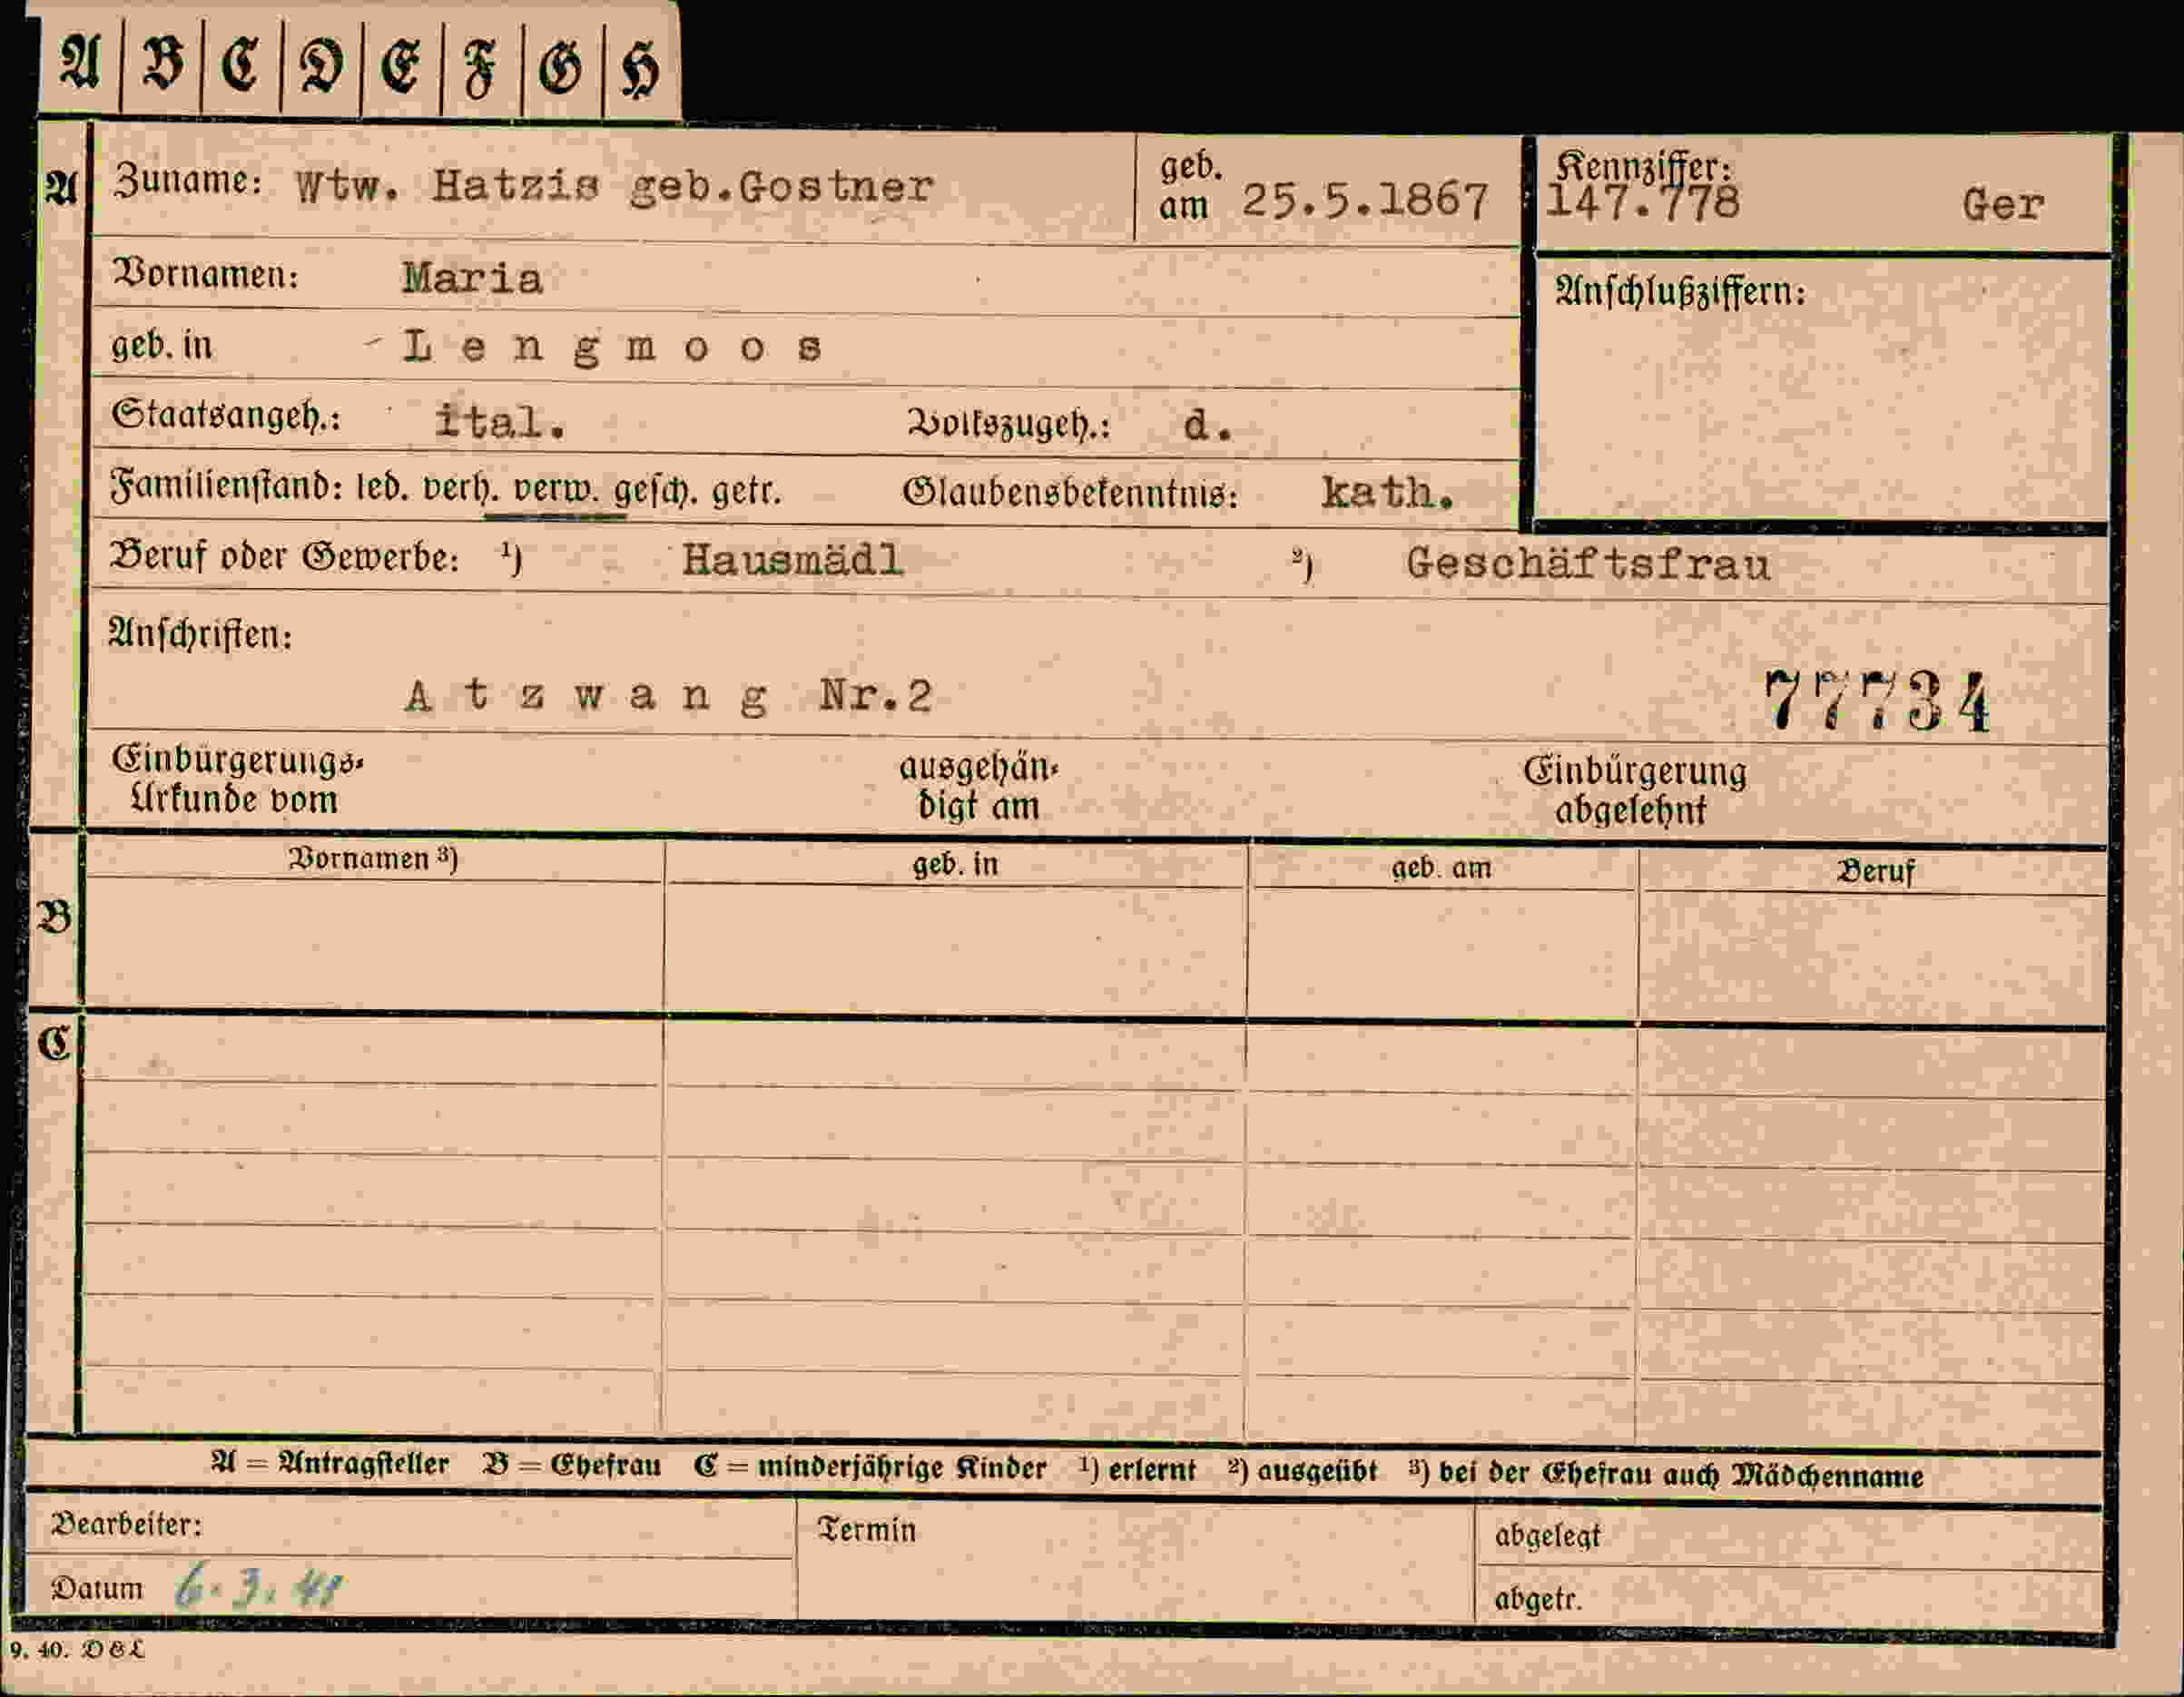 A B C D E F G H
A Zuname: Wtw. Hatzis geb.Gostner geb. am 25.5.1867 Kennziffer: 147.778 Ger
Vornamen: Maria Anschlußziffern:
geb. in - Lengmoos
Staatsangeh.: ital. Volkszugeh.: d.
Familienstand: led. verh. verw. gesch. getr. Glaubensbekenntnis: kath.
Beruf oder Gewerbe: ¹) Hausmädl ²) Geschäftsfrau
Anschriften:
Atzwang Nr.2 77734
Einbürgerungs- ausgehän- Einbürgerung
Urkunde vom digt am abgelehnt
Vornamen ³) geb. in geb. am Beruf
B
C
A = Antragsteller B = Ehefrau C = minderjährige Kinder ¹) erlernt ²) ausgeübt ³) bei der Ehefrau auch Mädchenname
Bearbeiter: Termin abgelegt
Datum 6.3.41 abgetr.
9. 40. D&L